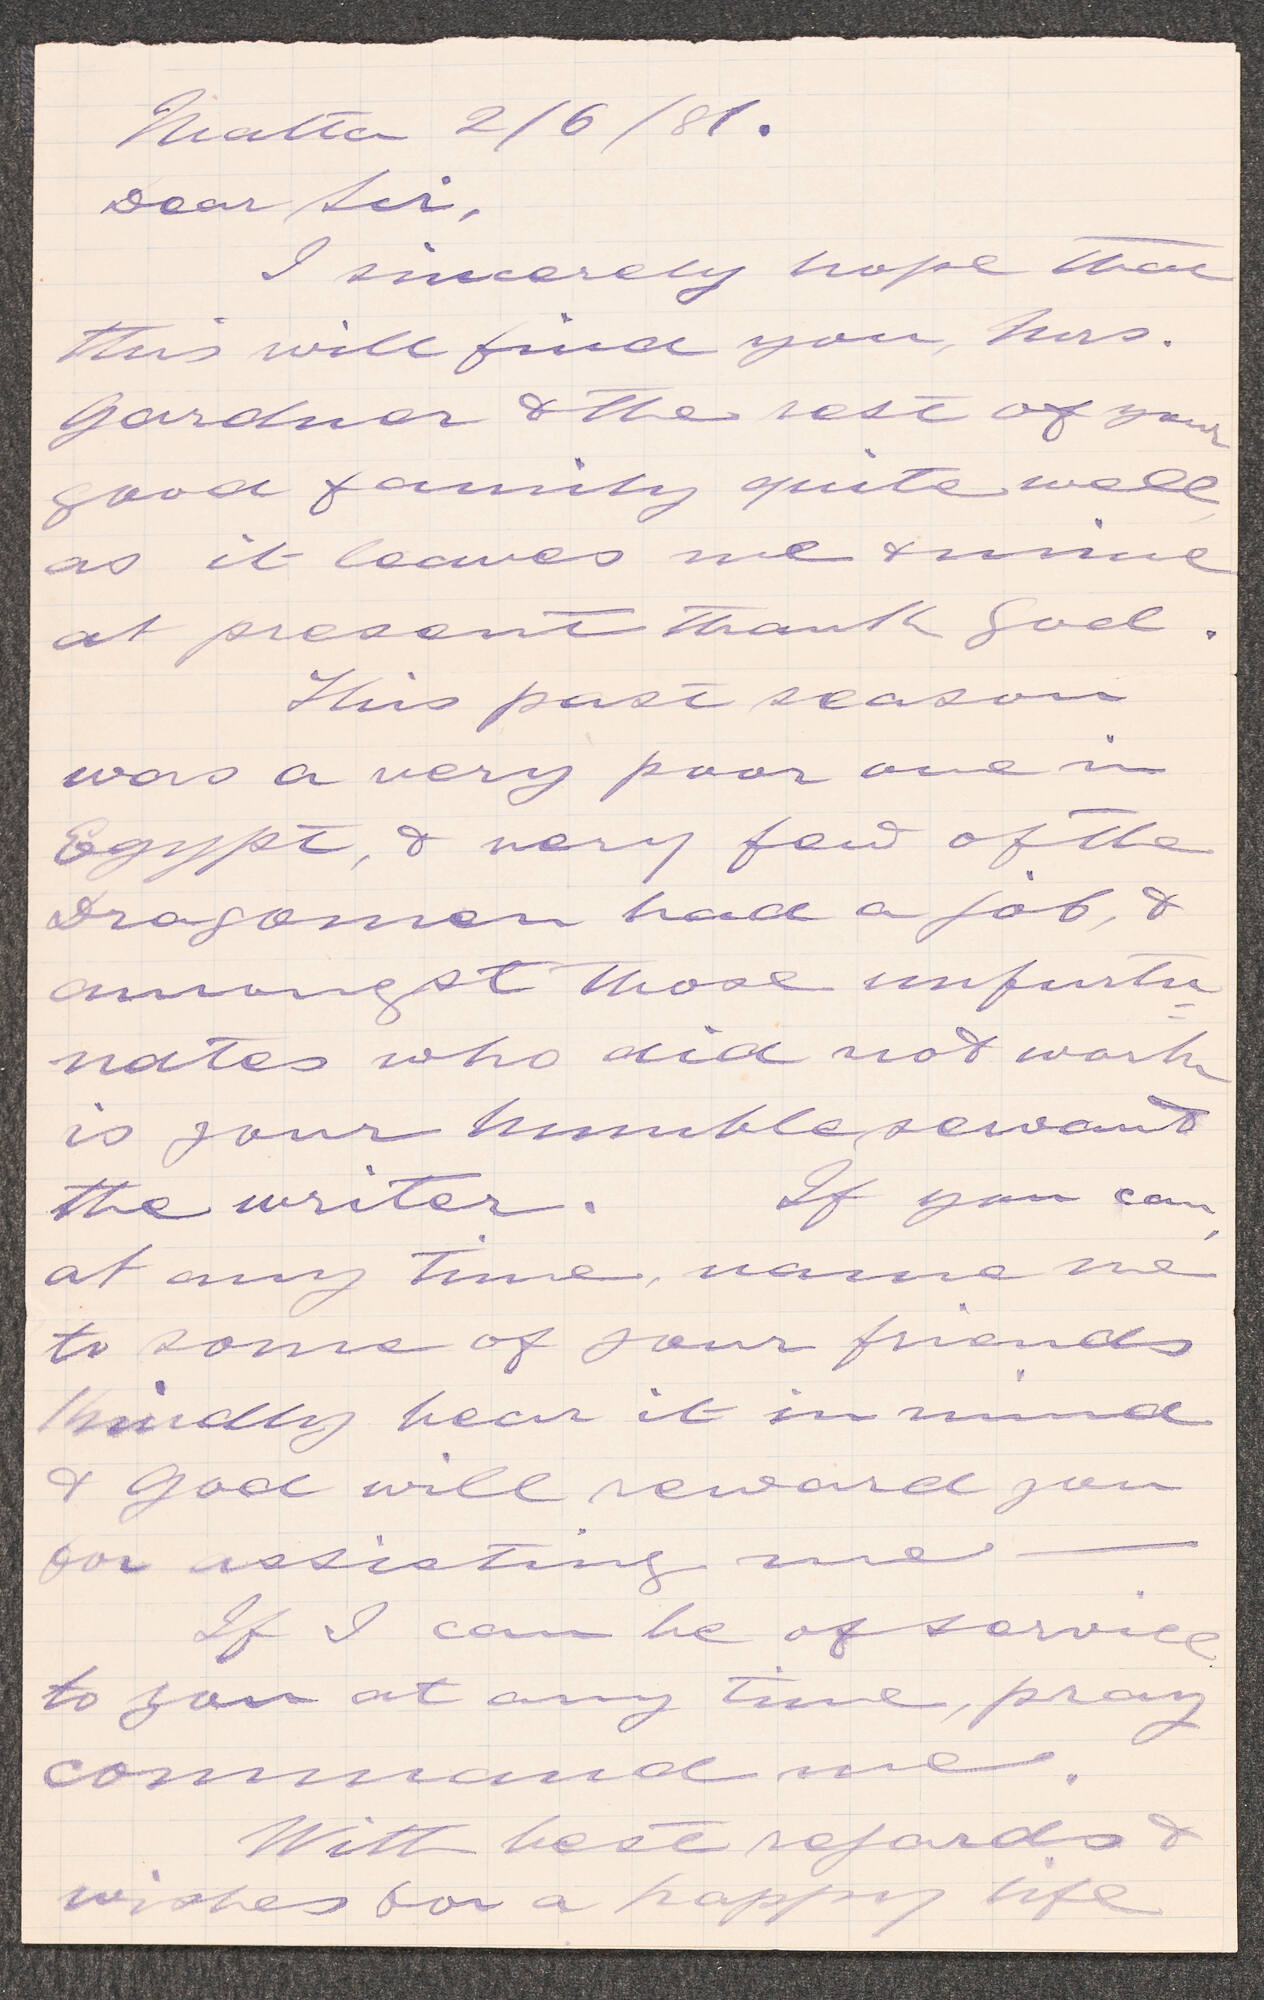 Malta 2/6/81.
Dear Sir,
I sincerely hope that
this will find you, Mrs.
Gardner & the rest of your
good family quite well,
as it leaves me & mine
at present thank God.
This past season
was a very poor one in
Egypt, & very few of the
Dragomen had a job, &
amongst those unfurtu=
nates who did not work
is your humble servant
the writer. If you can,
at any time, name me
to some of your friends
kindly bear it in mind
& God will reward you
for assisting me —
If I can be of service
to you at any time, pray
command me.
With best regards &
wishes for a happy life